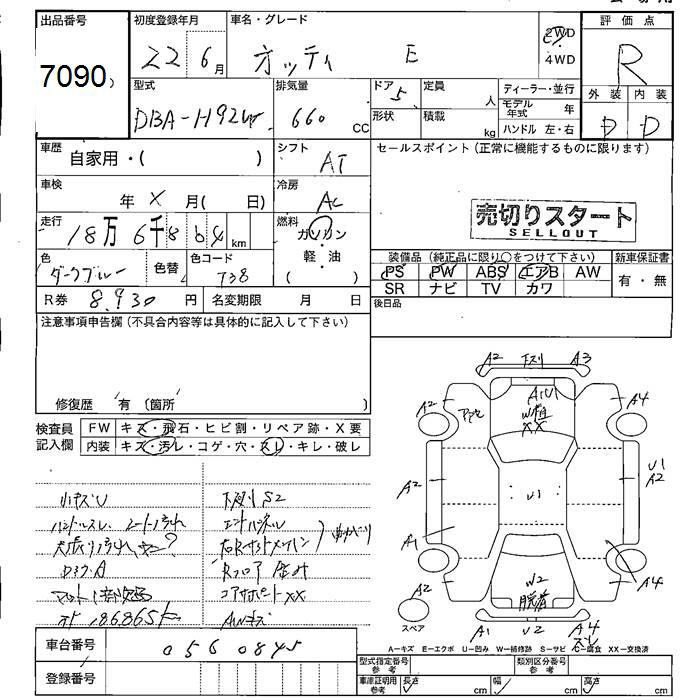 出品番号
7090
初度登録年月
22 6月
車名・グレード
オッティ E
2WD
4WD
評価点
R
外装 内装
D D
型式
DBA-H92W
排気量
660 CC
ドア 5
形状
定員 人
積載 kg
ディーラー・並行
モデル年式 年
ハンドル 左・右
車歴
自家用・( )
シフト
AT
セールスポイント(正常に機能するものに限ります)
車検
年 X 月( 日)
冷房
AC
売切りスタート
SELLOUT
走行
18万6千864km
燃料
ガソリン
・
軽・油
( )
色
ダークブルー
色替
色コード
T38
装備品(純正品に限り○をつけて下さい)
PS PW ABS エアB AW
SR ナビ TV カワ
新車保証書
有・無
R券 8,930円
名変期限 月 日
後日品
注意事項申告欄(不具合内容等は具体的に記入して下さい)
修復歴 有〔箇所 〕
検査員
記入欄
FW キズ・飛石・ヒビ割・リペア跡・X要
内装 キズ・汚レ・コゲ・穴・スレ・キレ・破レ
小キズU
下廻りS2
ハンドルスレ シート汚れ
天張り汚れ
コアサポートXX
AWキズ
車台番号
0560845
登録番号
A2 下廻り A3
A2
A1U1
XX
A4
A2
U1
U1
A2
A1
A4
W2
A2
スペア
A1 U2 A4
A-キズ E-エクボ U-凹み W-補修跡 S-サビ C-腐食 XX-交換済
型式指定番号
参考
類別区分番号
参考
車庫証明用
参考
長さ cm
幅 cm
高さ cm